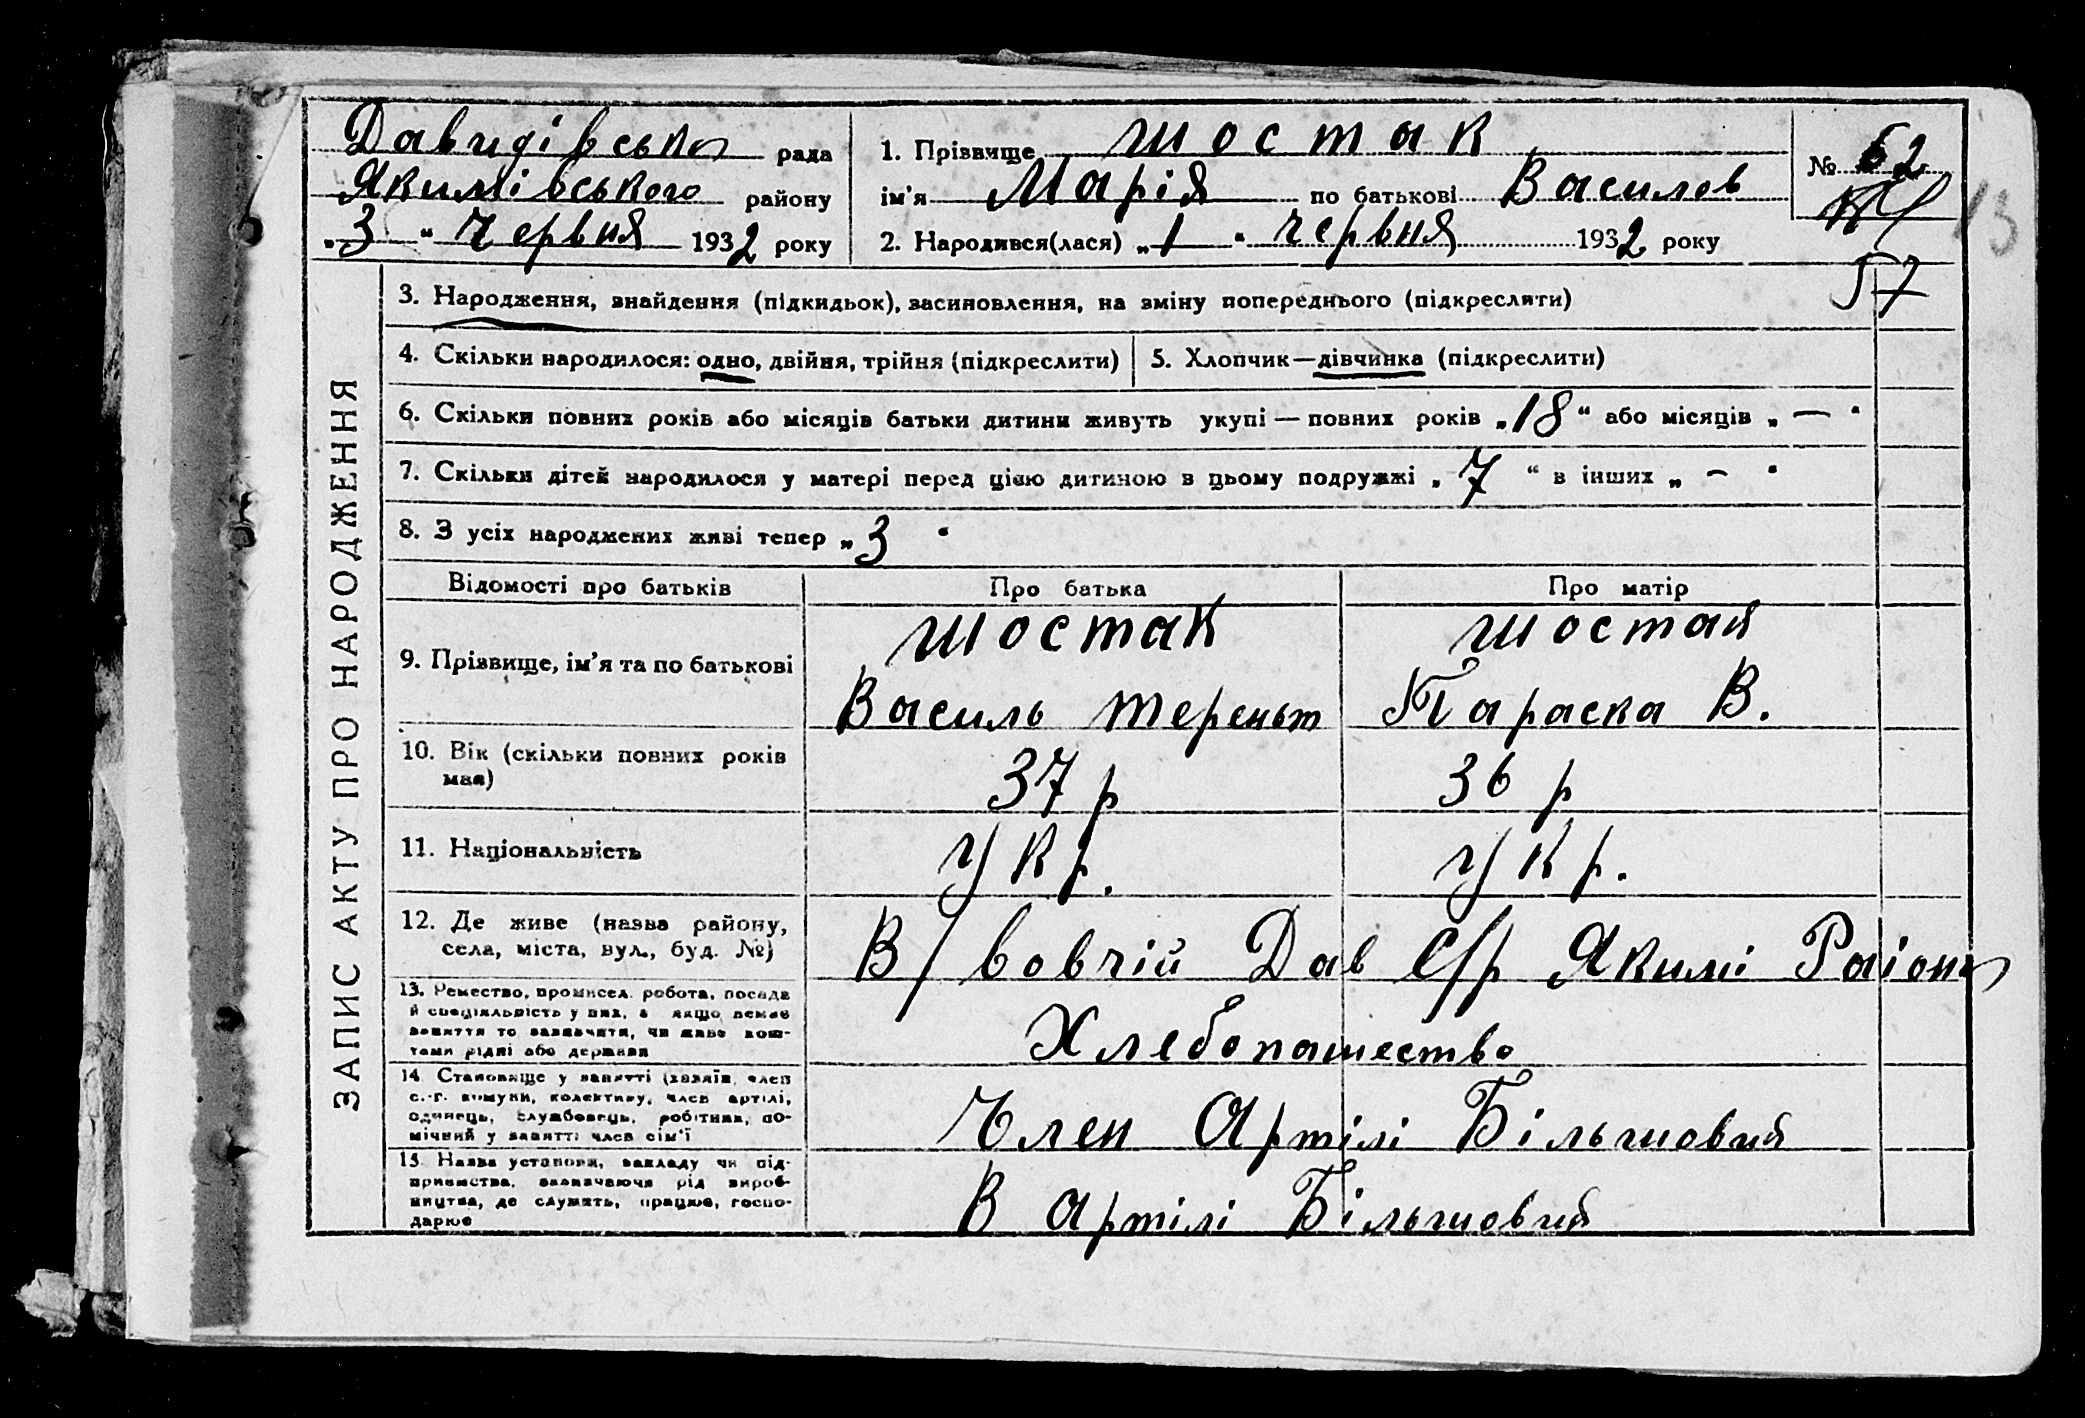 Давидівська рада
Якимівського району
„3“ Червня 1932 року
1. Прізвище Шостак
ім'я Марія по батькові Василов
2. Народився(лася) „1“ червня 1932 року
№ 62
57
13
ЗАПИС АКТУ ПРО НАРОДЖЕННЯ
3. Народження, знайдення (підкидьок), засиновлення, на зміну попереднього (підкреслити)
4. Скільки народилося: одно, двійня, трійня (підкреслити)
5. Хлопчик—дівчинка (підкреслити)
6. Скільки повних років або місяців батьки дитини живуть укупі — повних років „18“ або місяців „—“
7. Скільки дітей народилося у матері перед цією дитиною в цьому подружжі „7“ в інших „–“
8. З усіх народжених живі тепер „3“
Відомості про батьків
Про батька
Про матір
9. Прізвище, ім'я та по батькові
Шостак
Василь Тереньт
Шостак
Параска В.
10. Вік (скільки повних років
має)
37 р
36 р
11. Національність
Укр.
Укр.
12. Де живе (назва району,
села, міста, вул., буд. №)
В/ Вовчій Дав С/р Якимі Раіона
13. Ремество, промисел, робота, посада
й спеціяльність у них, а якщо немає
заняття то зазначити, чи живе кош-
тами рідні або держави
Хлебопашество
14. Становище у занятті (хазяїн, член
с.-г. комуни, колективу, член артілі,
одинець, службовець, робітник, по-
мічний у занятті член сім'ї
Член Артілі Більшовий
15. Назва установи, закладу чи під-
приємства, зазначаючи рід вироб-
ництва, де служить, працює, госпо-
дарює
В Артілі Більшовий